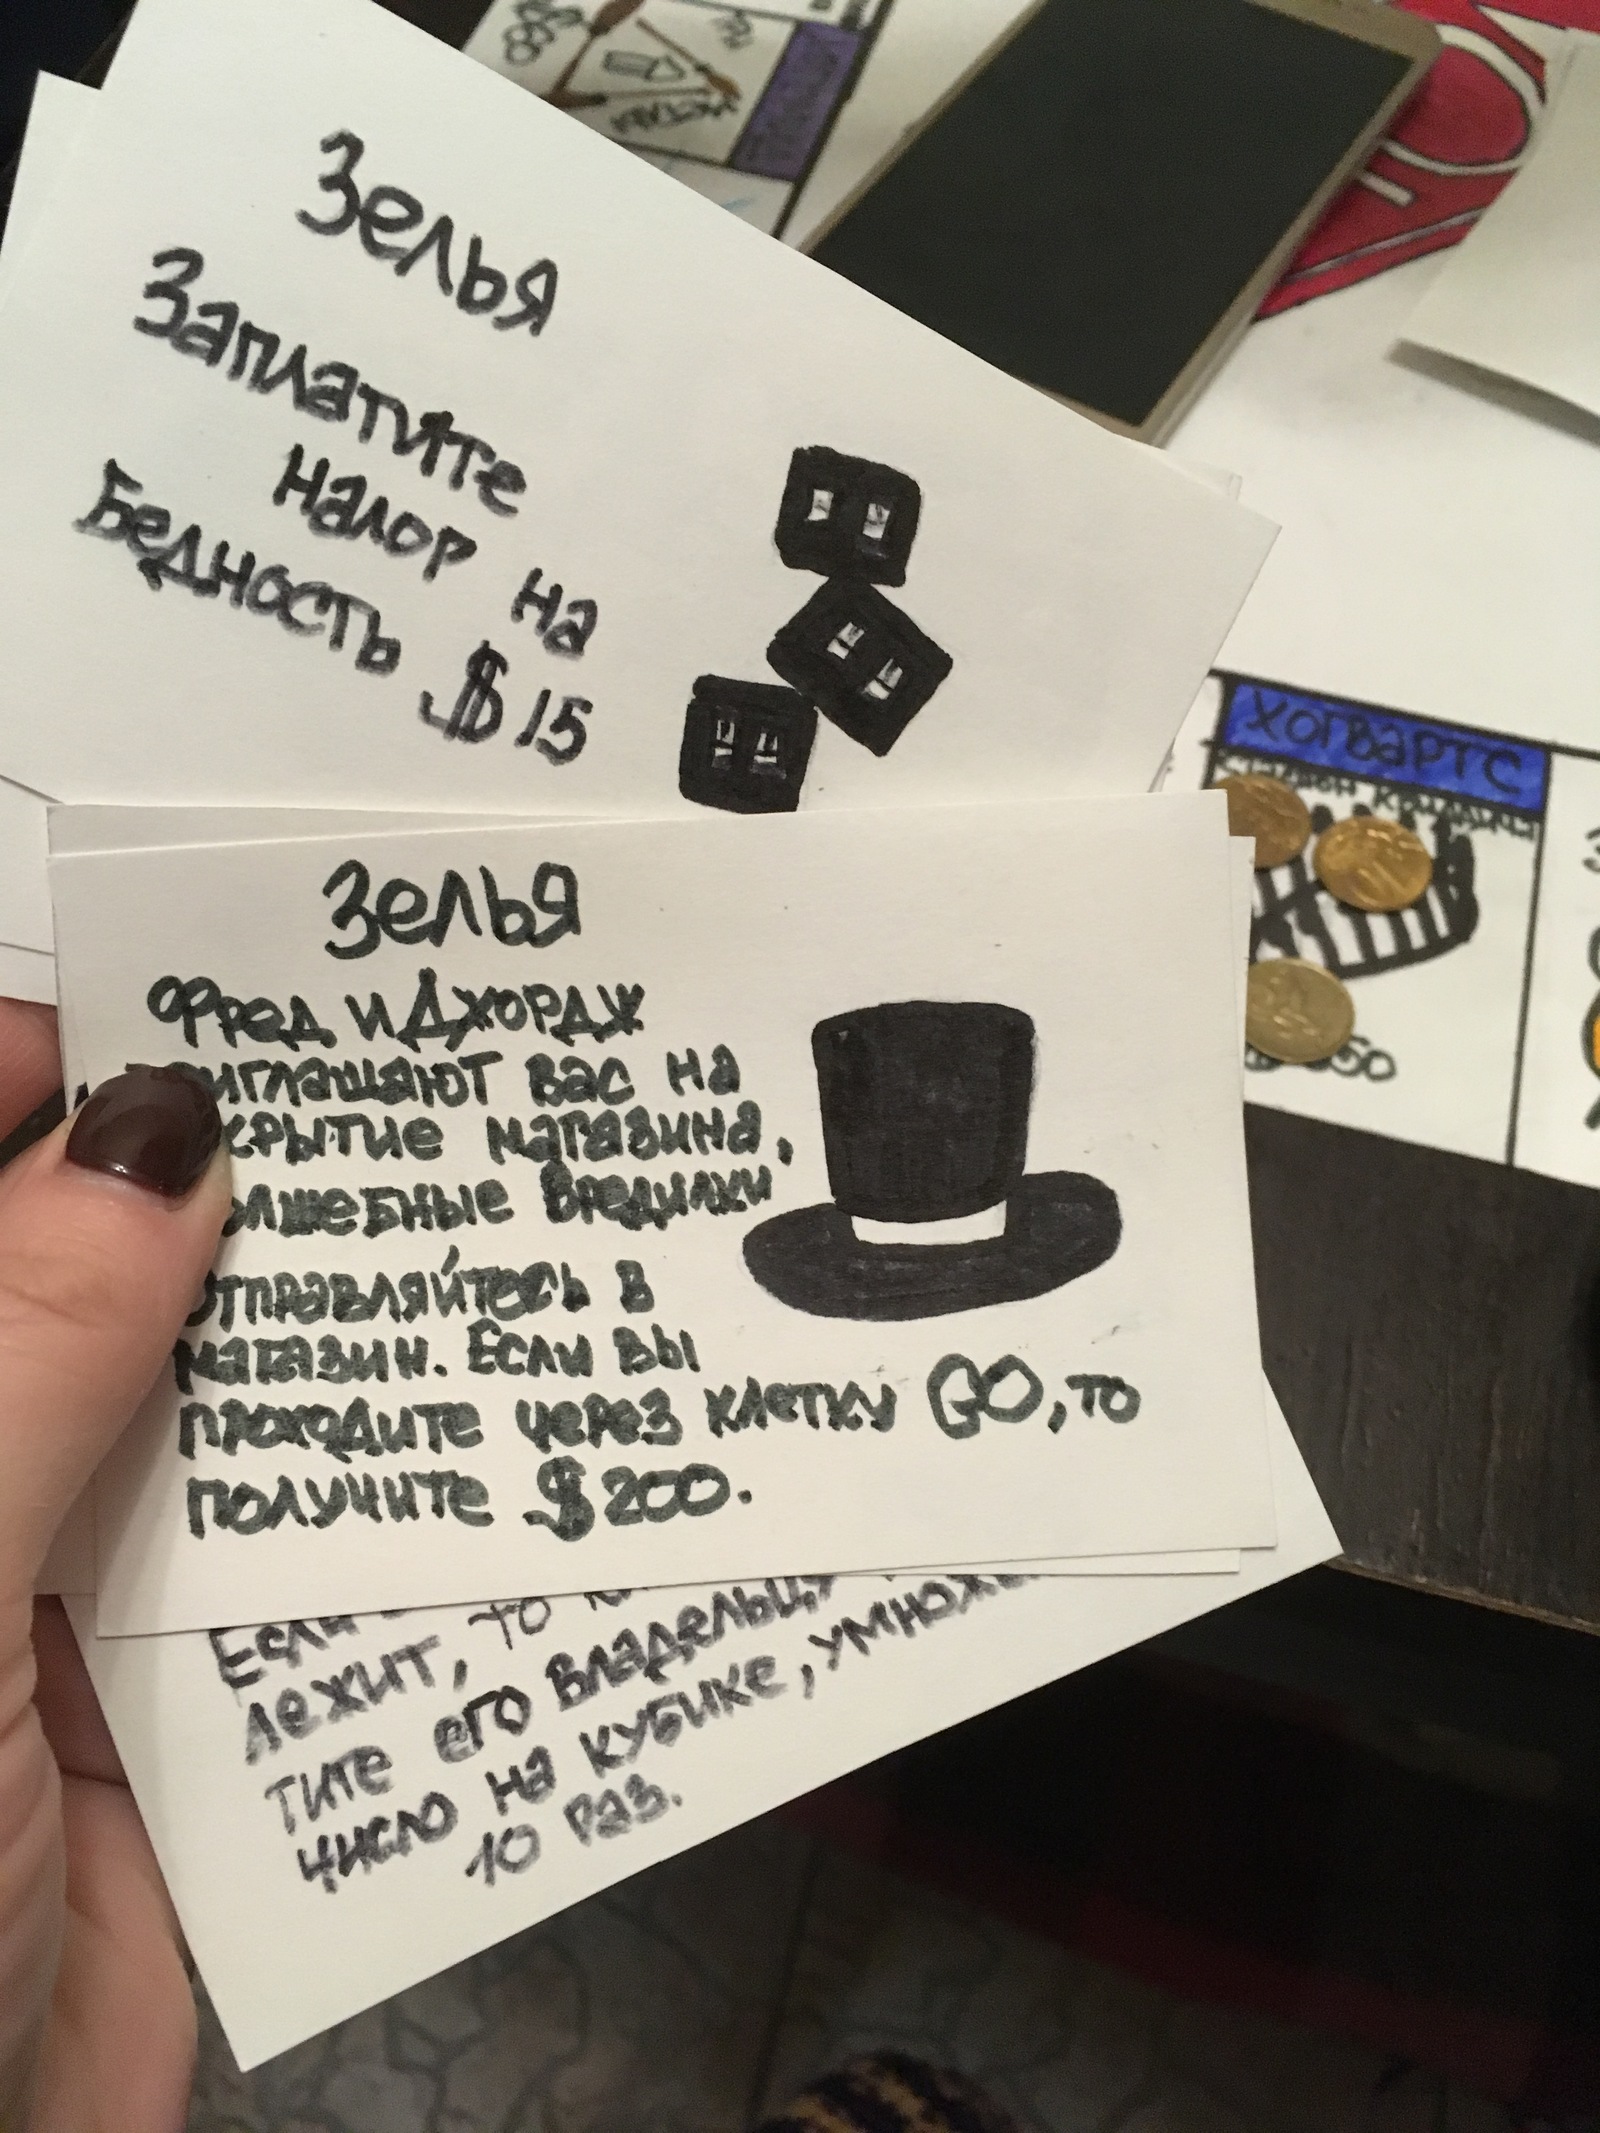 Зелья
Заплатите
налог на
Бедность $15
Зелья
Фред и Джордж
приглашают вас на
крытие магазина,
олшебные вредилки
Отправляйтесь в
магазин. Если вы
проходите через клетку GO, то
получите $200.
Если
лежит, то
тите его владельцу
число на кубике, умноже
10 раз.
ХОГВАРТС